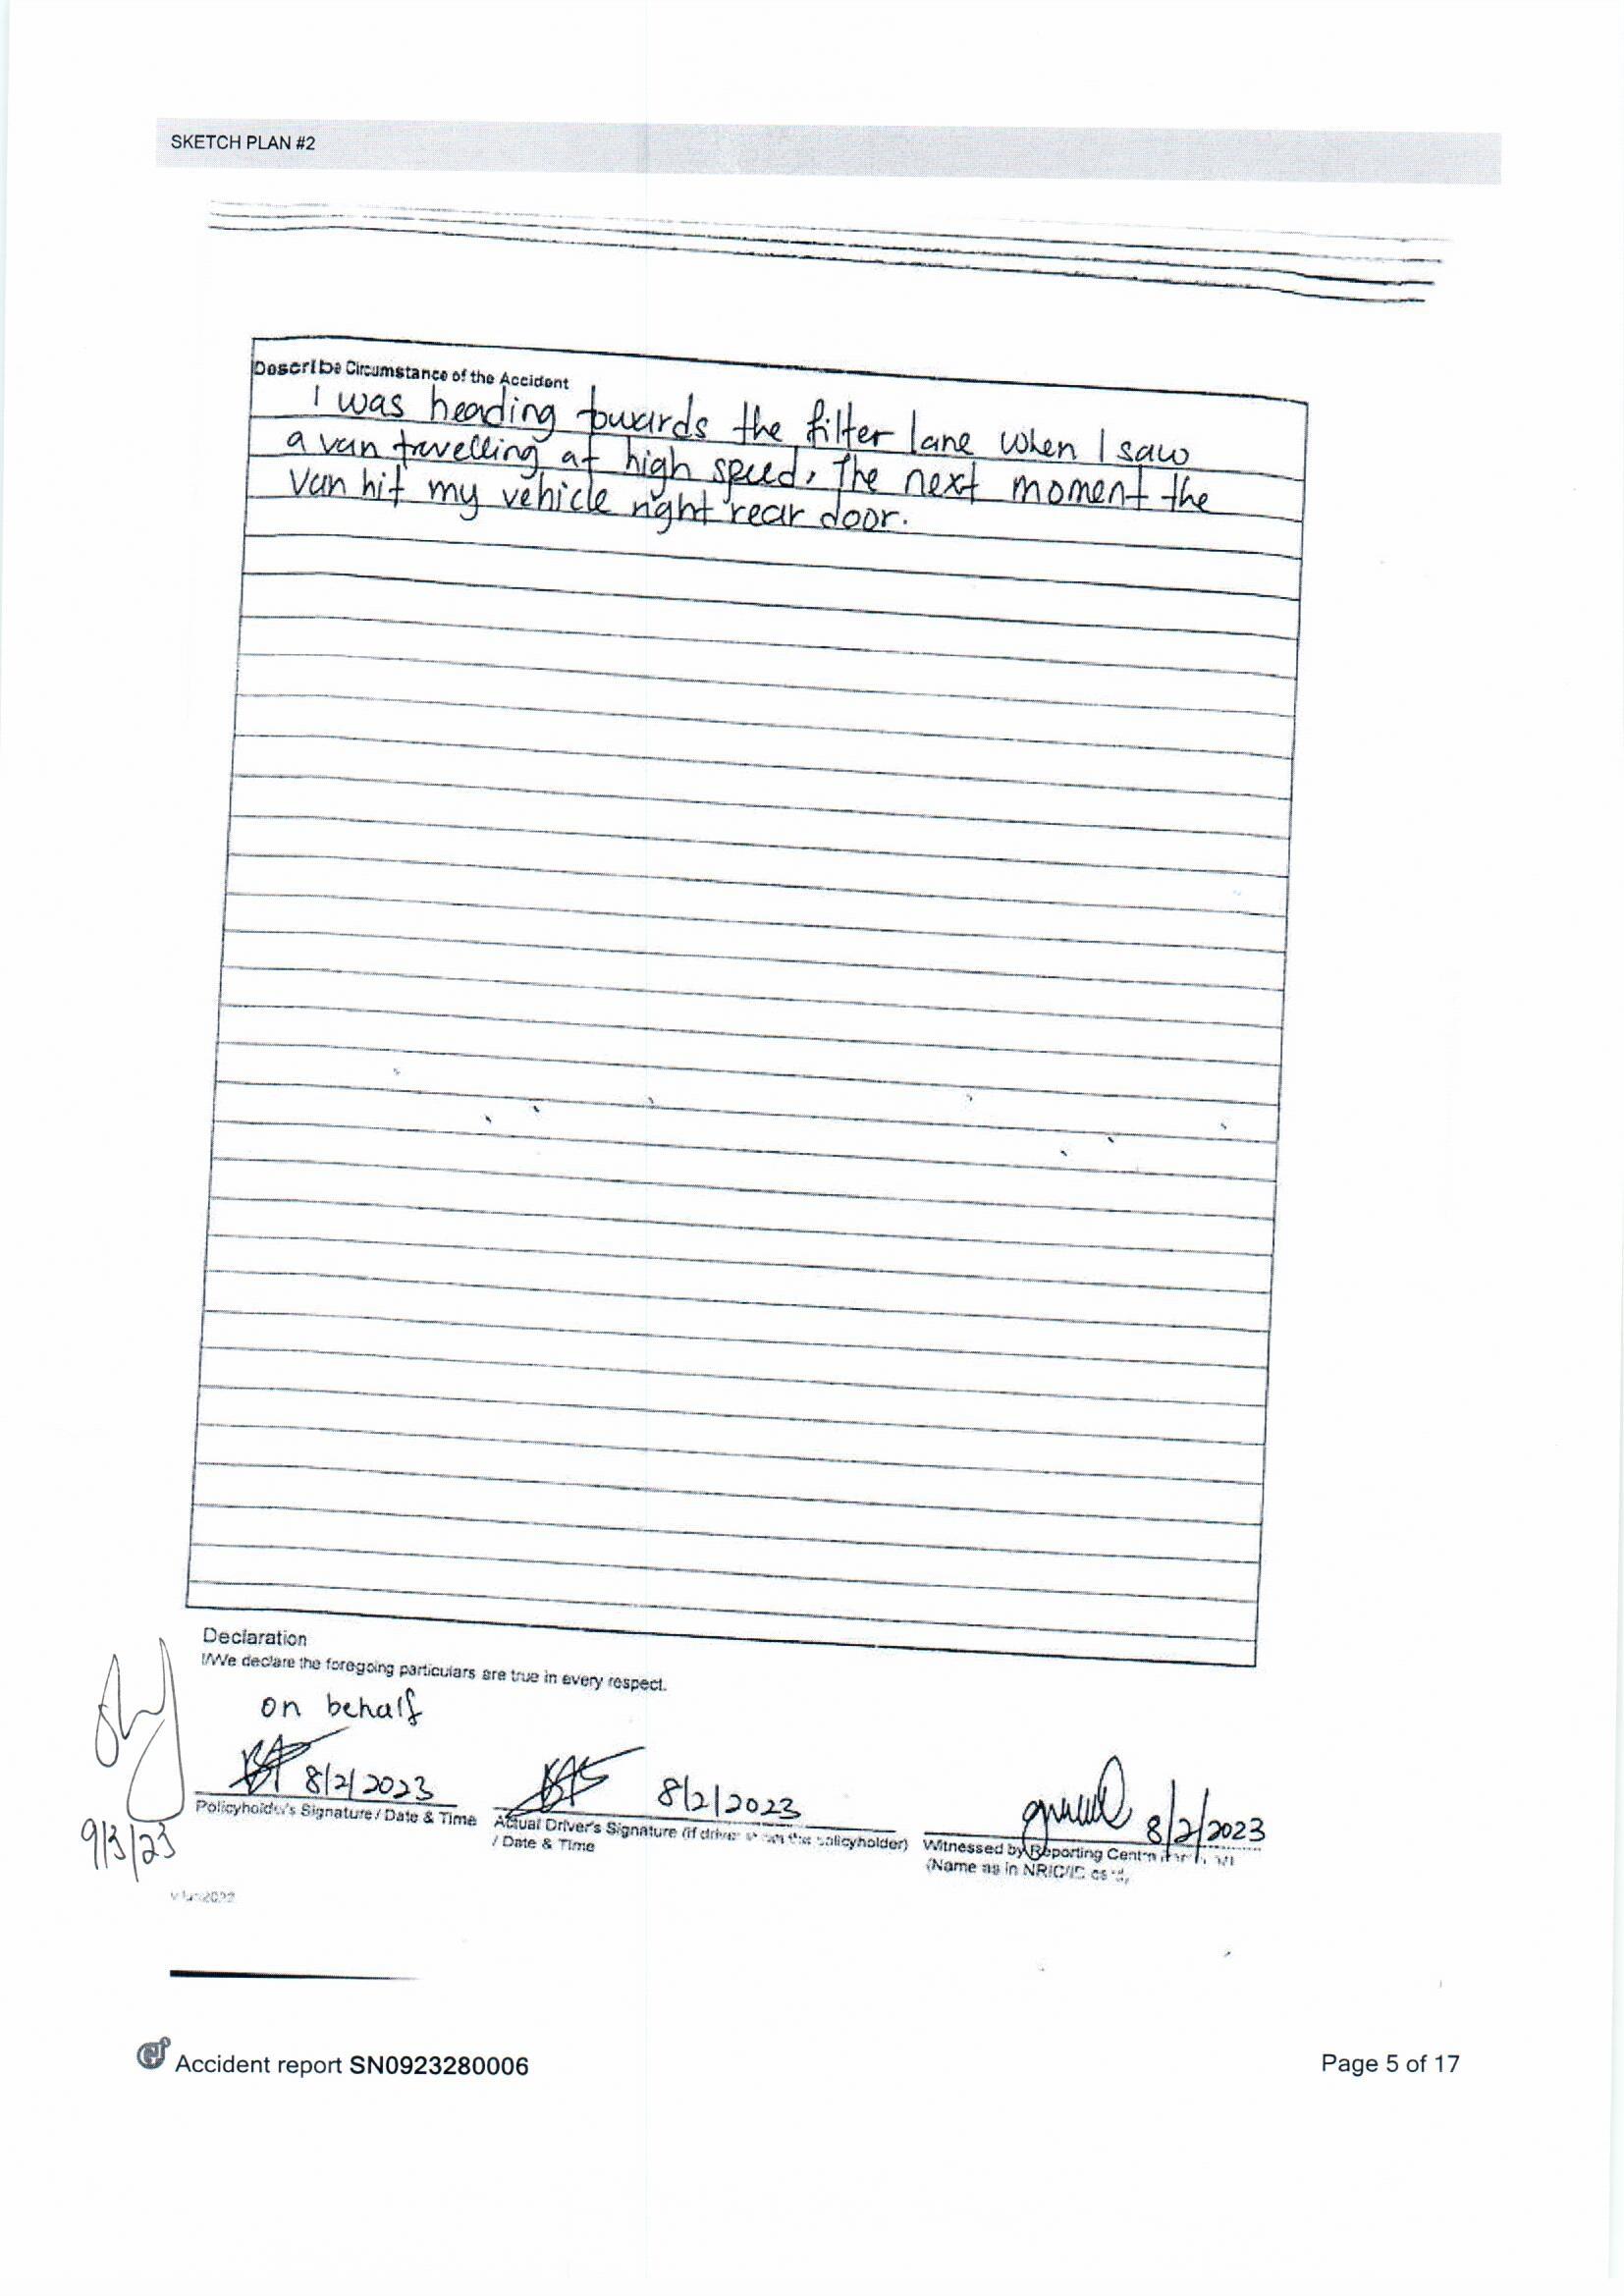 SKETCH PLAN #2
Describe Circumstance of the Accident
I was heading towards the filter lane when I saw
a van travelling at high speed. The next moment the
van hit my vehicle right rear door.
Declaration
I/We declare the foregoing particulars are true in every respect.
on behalf
8/2/2023
8/2/2023
8/2/2023
Policyholder's Signature / Date & Time
Actual Driver's Signature (if driver is not the policyholder)
/ Date & Time
Witnessed by Reporting Centre
(Name as in NRIC/ID card)
9/3/23
Accident report SN0923280006
Page 5 of 17